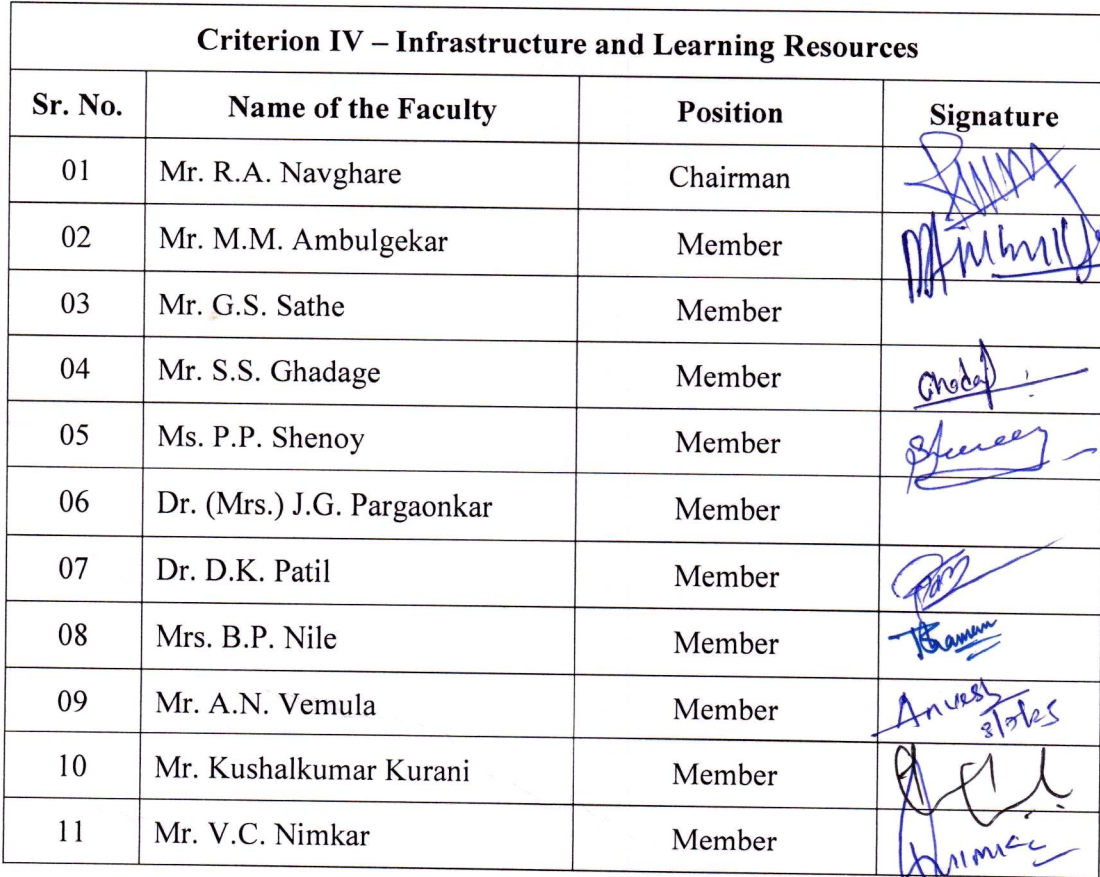 Criterion IV – Infrastructure and Learning Resources
Sr. No. Name of the Faculty Position Signature
01 Mr. R.A. Navghare Chairman
02 Mr. M.M. Ambulgekar Member
03 Mr. G.S. Sathe Member
04 Mr. S.S. Ghadage Member
05 Ms. P.P. Shenoy Member
06 Dr. (Mrs.) J.G. Pargaonkar Member
07 Dr. D.K. Patil Member
08 Mrs. B.P. Nile Member
09 Mr. A.N. Vemula Member Anvesh
10 Mr. Kushalkumar Kurani Member
11 Mr. V.C. Nimkar Member